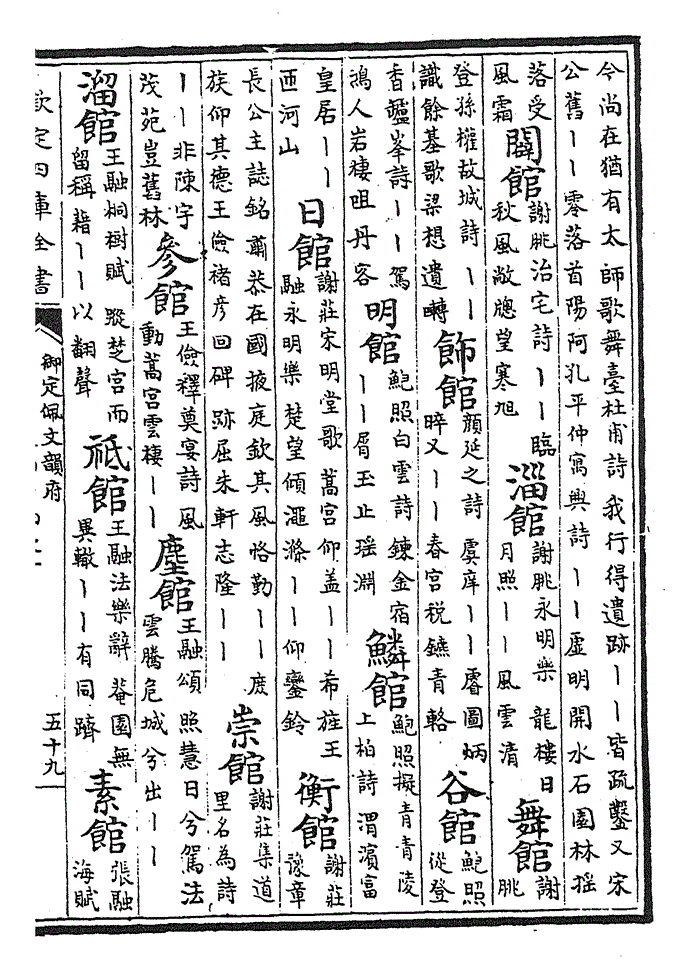 今尚在猶有太師歌舞臺杜甫詩我行得遺跡丨丨皆疏鑿又宋
公舊丨丨零落首陽阿孔平仲寓興詩丨丨虛明開水石園林摇
落受
風霜
闢館
謝朓治宅詩丨丨臨
秋風敞牕望寒旭
淄館
謝朓永明樂龍樓日
月照丨丨風雲清
舞館
謝
朓
登孫權故城詩丨丨
識餘基歌梁想遺囀
飾館
顔延之詩虞庠丨丨睿圖炳
晬又丨丨春宫税鑣青輅
谷館
鮑照
從登
香罏峯詩丨丨駕
鴻人岩棲咀丹客
明館
鮑照白雲詩鍊金宿
丨丨屑玉止瑶淵
鱗館
鮑照擬青青陵
上柏詩渭濱富
皇居丨丨
匝河山
日館
謝莊宋明堂歌蒿宫仰盖丨丨希旌王
融永明樂楚望傾澠滌丨丨仰鑾鈴
衡館
謝莊
豫章
長公主誌銘肅恭在國掖庭欽其風恪勤丨丨庶
族仰其德王儉褚彦回碑跡屈朱軒志隆丨丨
崇館
謝莊集道
里名為詩
丨丨非陳宇
茂苑豈舊林
參館
王儉釋奠宴詩風
動蒿宫雲棲丨丨
塵館
王融頌照慧日兮駕法
雲騰危城兮出丨丨
溜館
王融桐樹賦蹤芝宫而
留稱藉丨丨以翻聲
祗館
王融法樂辭菴園無
異轍丨丨有同躋
素館
張融
海賦
欽定四庫全書
御定佩文韻府
五十九